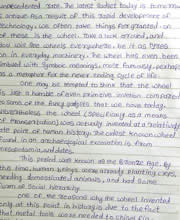 unprecedented rate. The latest gadget today is tomorrow
antique. As a result of this rapid development of
technology, we often take things for granted. One
of these is the wheel. Take a look around, and
you will see wheels everywhere, be it as tyres
or in everyday machinery. The wheel has even been
imbued with symbolic meanings, most famously, perhaps
as a metaphor for the never ending cycle of life.
One may be tempted to think that the wheel
is just a humble or even primitive invention compared
to some of the fancy gadgets that we have today.
Nevertheless, the wheel (specifically as a means
of transportation) was actually invented at a relatively
late point of human history. The oldest known wheel
found in an archaeological excavation is from
Mesopotamia, and dates
This period was known as the Bronze Age. By
this time, human beings were already planting crops,
herding domesticated animals, and had some
form of social hierarchy.
One of the reasons why the wheel invented
only at this point in history is due to the fact
that metal tools were needed to chisel fine